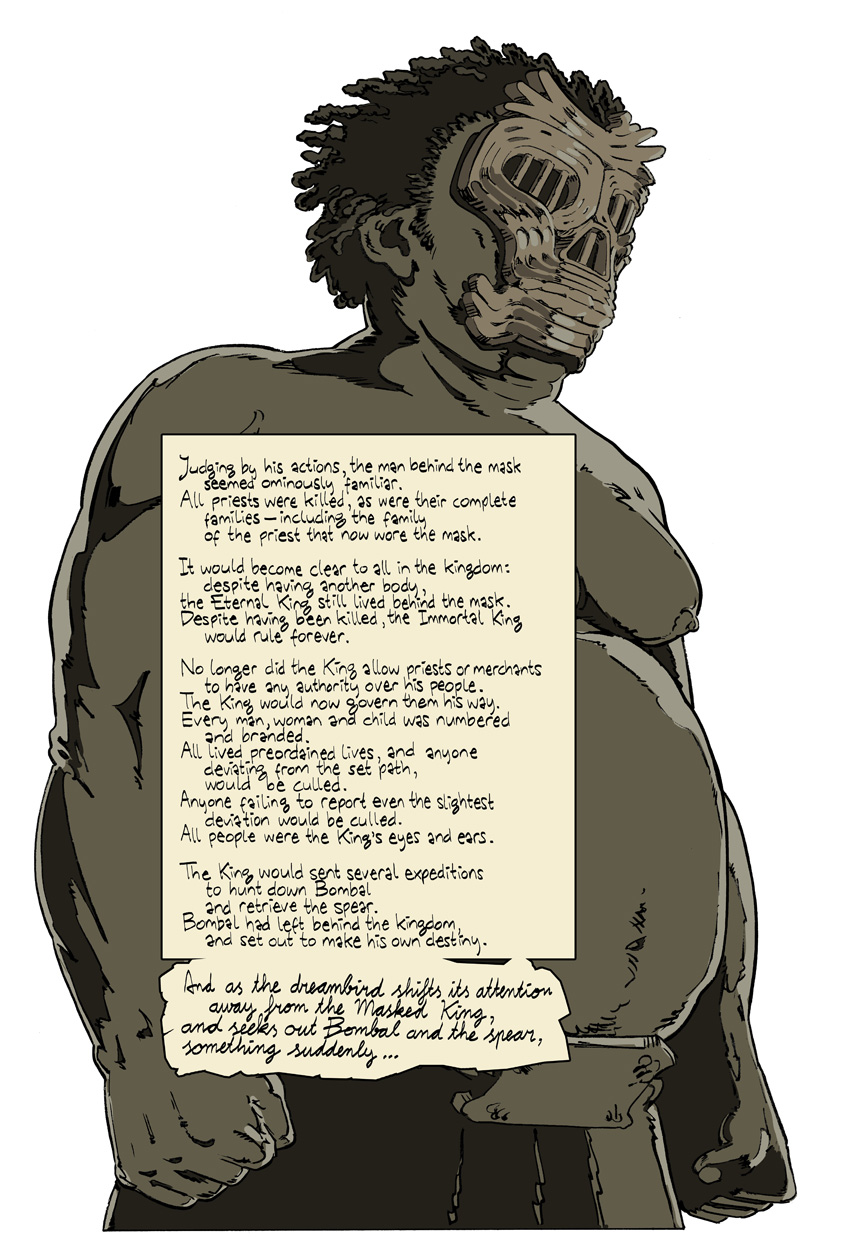 Judging by his actions, the man behind the mask
seemed ominously familiar.
All priests were killed, as were their complete
families – including the family
of the priest that now wore the mask.
It would become clear to all in the kingdom:
despite having another body,
the Eternal King still lived behind the mask.
Despite having been killed, the Immortal King
would rule forever.
No longer did the King allow priests or merchants
to have any authority over his people.
The King would now govern them his way.
Every man, woman and child was numbered
and branded.
All lived preordained lives, and anyone
deviating from the set path,
would be culled.
Anyone failing to report even the slightest
deviation would be culled.
All people were the King's eyes and ears.
The King would sent several expeditions
to hunt down Bombal
and retrieve the spear.
Bombal had left behind the kingdom,
and set out to make his own destiny.
And as the dreambird shifts its attention
away from the Masked King,
and seeks out Bombal and the spear,
something suddenly ...